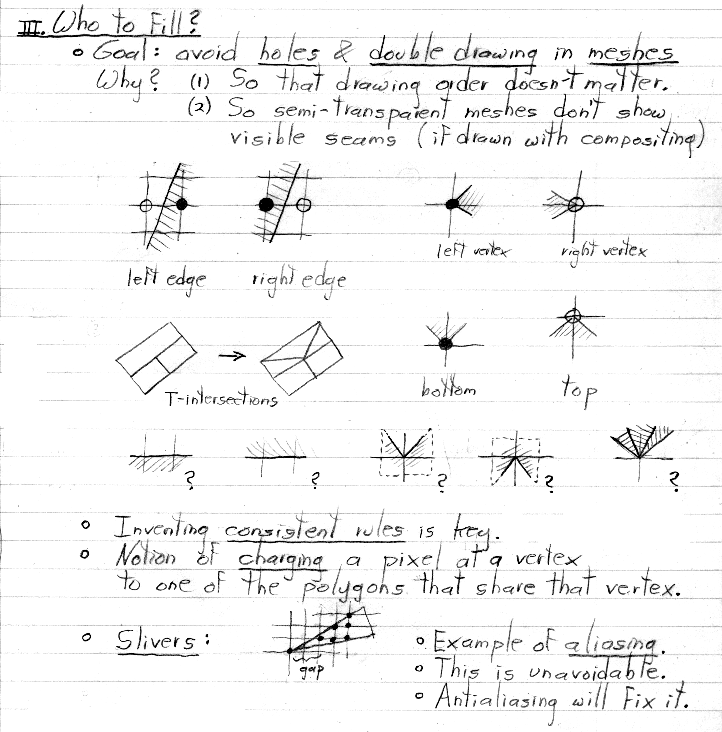 III. Who to Fill?
o Goal: avoid holes & double drawing in meshes
Why? (1) So that drawing order doesn't matter.
(2) So semi-transparent meshes don't show
visible seams (if drawn with compositing)
left vertex right vertex
left edge right edge
bottom top
T-intersections
? ? ? ? ?
o Inventing consistent rules is key.
o Notion of charging a pixel at a vertex
to one of the polygons that share that vertex.
o Slivers:
gap
o Example of aliasing.
o This is unavoidable.
o Antialiasing will fix it.